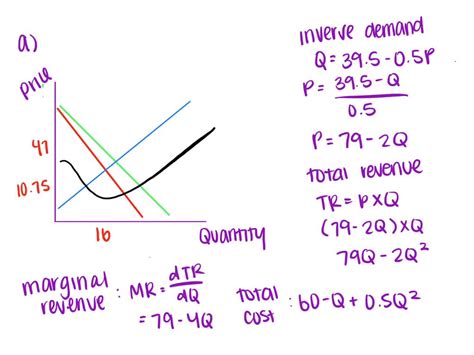 a)
Price
47
10.75
16
Quantity
inverve demand
Q = 39.5 - 0.5P
P = 39.5 - Q
0.5
P = 79 - 2Q
total revenue
TR = P x Q
(79 - 2Q) x Q
79Q - 2Q²
marginal revenue : MR = dTR
dQ
= 79 - 4Q
total cost : 60 - Q + 0.5Q²